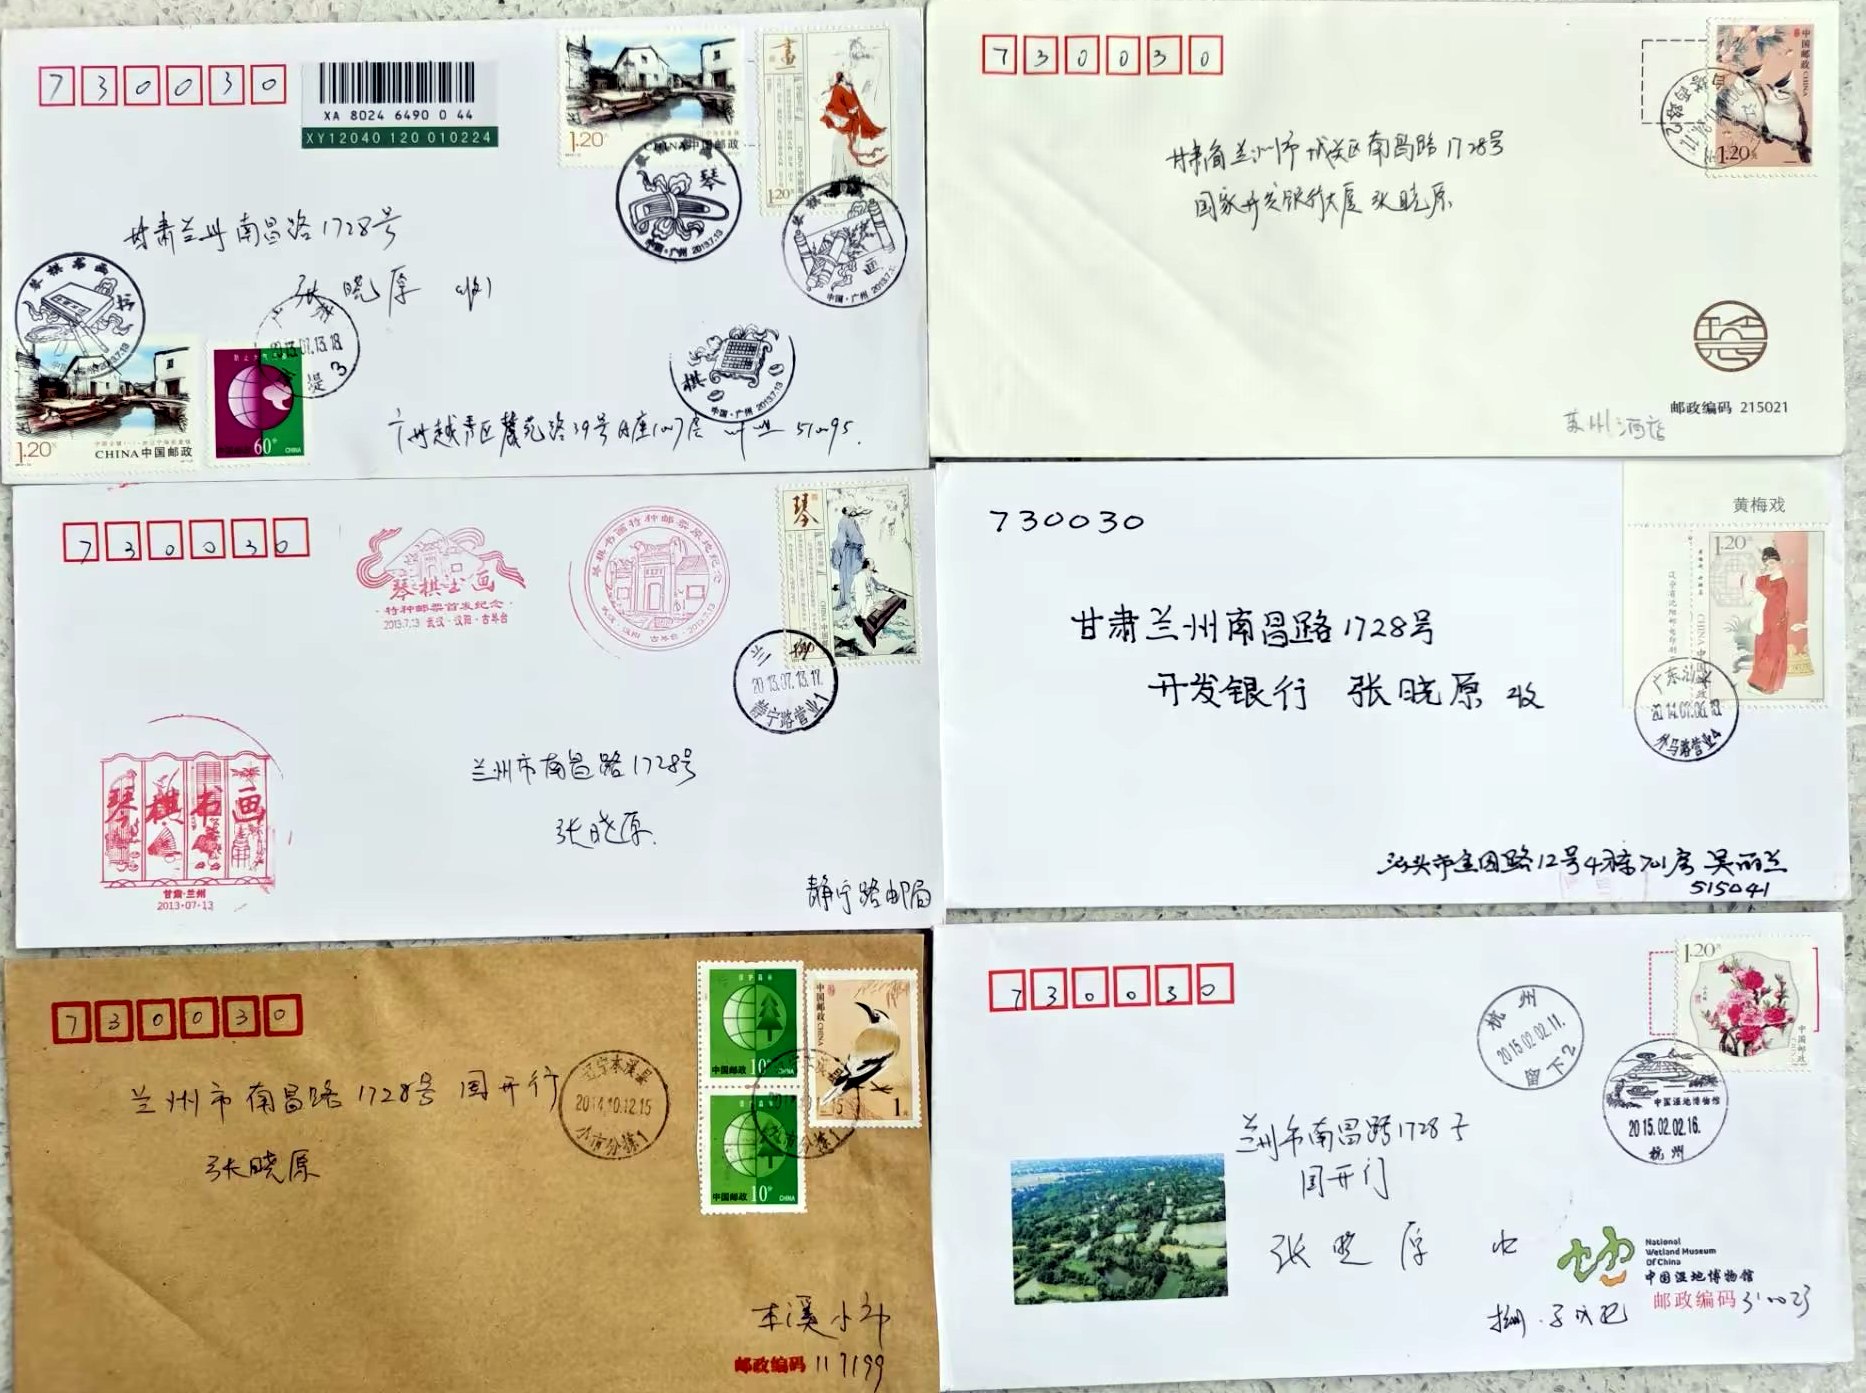 730030
XA 8024 6490 0 44
XY12040 120 010224
1.20元
CHINA中国邮政
畫
1.20元
琴
中国·广州 2013.7.13
画
中国·广州 2013.7.13
甘肃兰州南昌路1728号
张晓原 (收)
琴棋书画
2013.07.13.18
堤3
1.20元
CHINA中国邮政
60分
CHINA
棋
中国·广州 2013.7.13
730030
甘肃省兰州市城关区南昌路1728号
国家开发银行大厦 张晓原
中国邮政 CHINA
1.20元
邮政编码 215021
苏州 酒店
730030
琴棋书画
·特种邮票首发纪念·
2013.7.13 武汉·汉阳·古琴台
琴棋书画特种邮票原地纪念
武汉·汉阳 古琴台·2013.7.13
琴
兰州
2013.07.13.17
静宁路营业1
琴棋书画
甘肃·兰州
2013·07·13
兰州市南昌路1728号
张晓原.
静宁路邮局
730030
黄梅戏
1.20元
CHINA 中国邮政
甘肃兰州南昌路1728号
开发银行 张晓原 收
广东汕头
2014.07.06.18
外马路营业4
515041
730030
兰州市南昌路1728号 国开行
张晓原
辽宁本溪县
2014.10.12.15
小市分拣1
中国邮政 10分 CHINA
中国邮政 10分 CHINA
中国邮政 CHINA
1元
本溪小市
邮政编码 117199
730030
1.20元
中国邮政
杭州
2015.02.02.11.
留下2
中国湿地博物馆
2015.02.02.16.
杭州
兰州市南昌路1728号
国开行
张晓原 收
National
Wetland Museum
Of China
中国湿地博物馆
邮政编码 310023